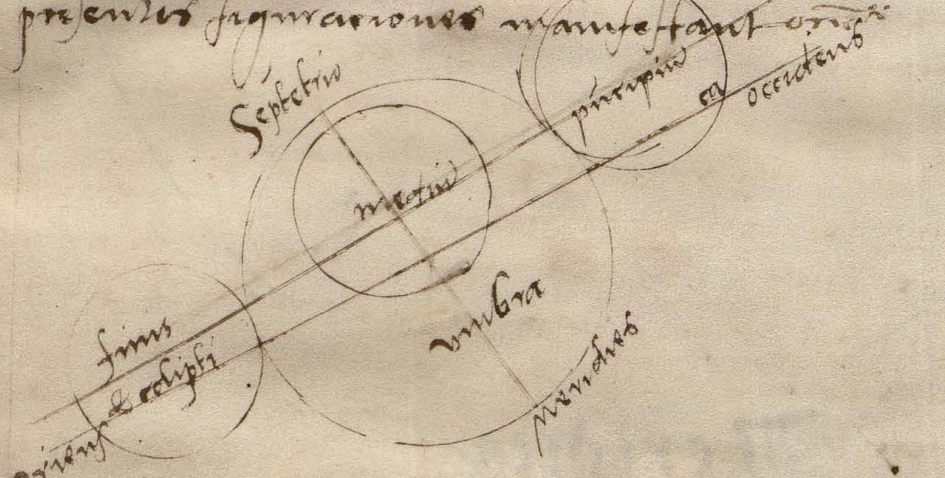 presentes figurationes manifestant
Septetrio
pricipiu
ca
occidens
mediu
umbra
finis
eclipti
oriens
meridies